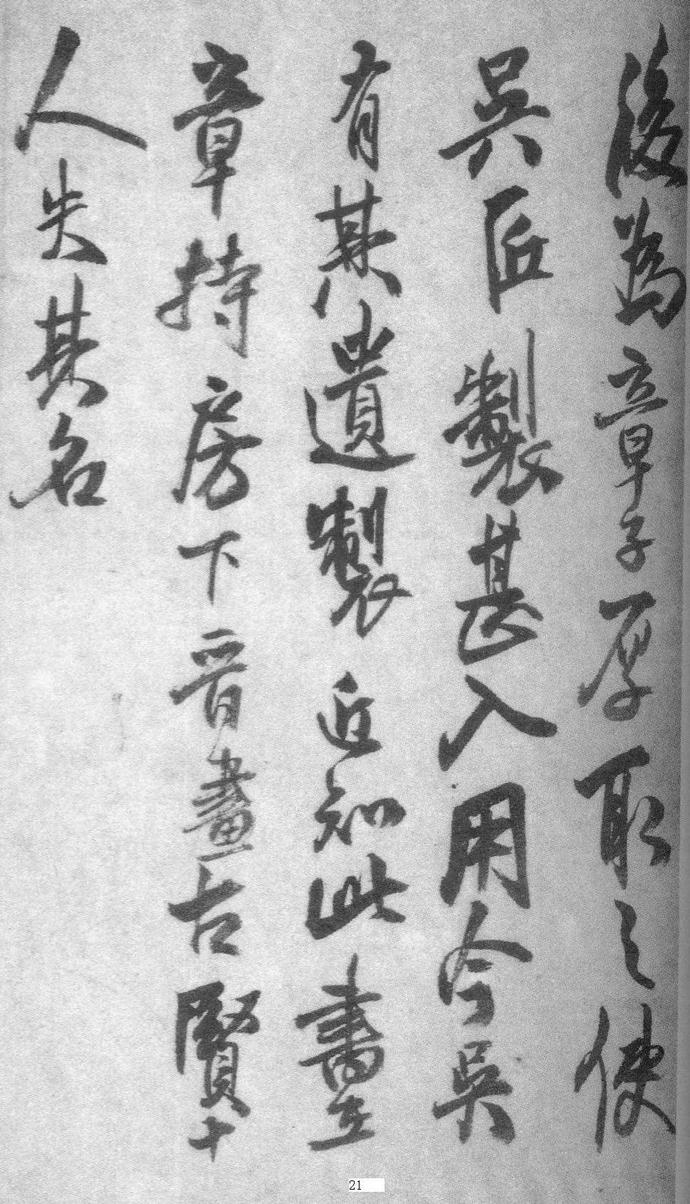 後為章子厚取之使
吳匠製甚入用今吳
有其遺製近知此書在
章持房下晋畫古賢十
人失其名
21